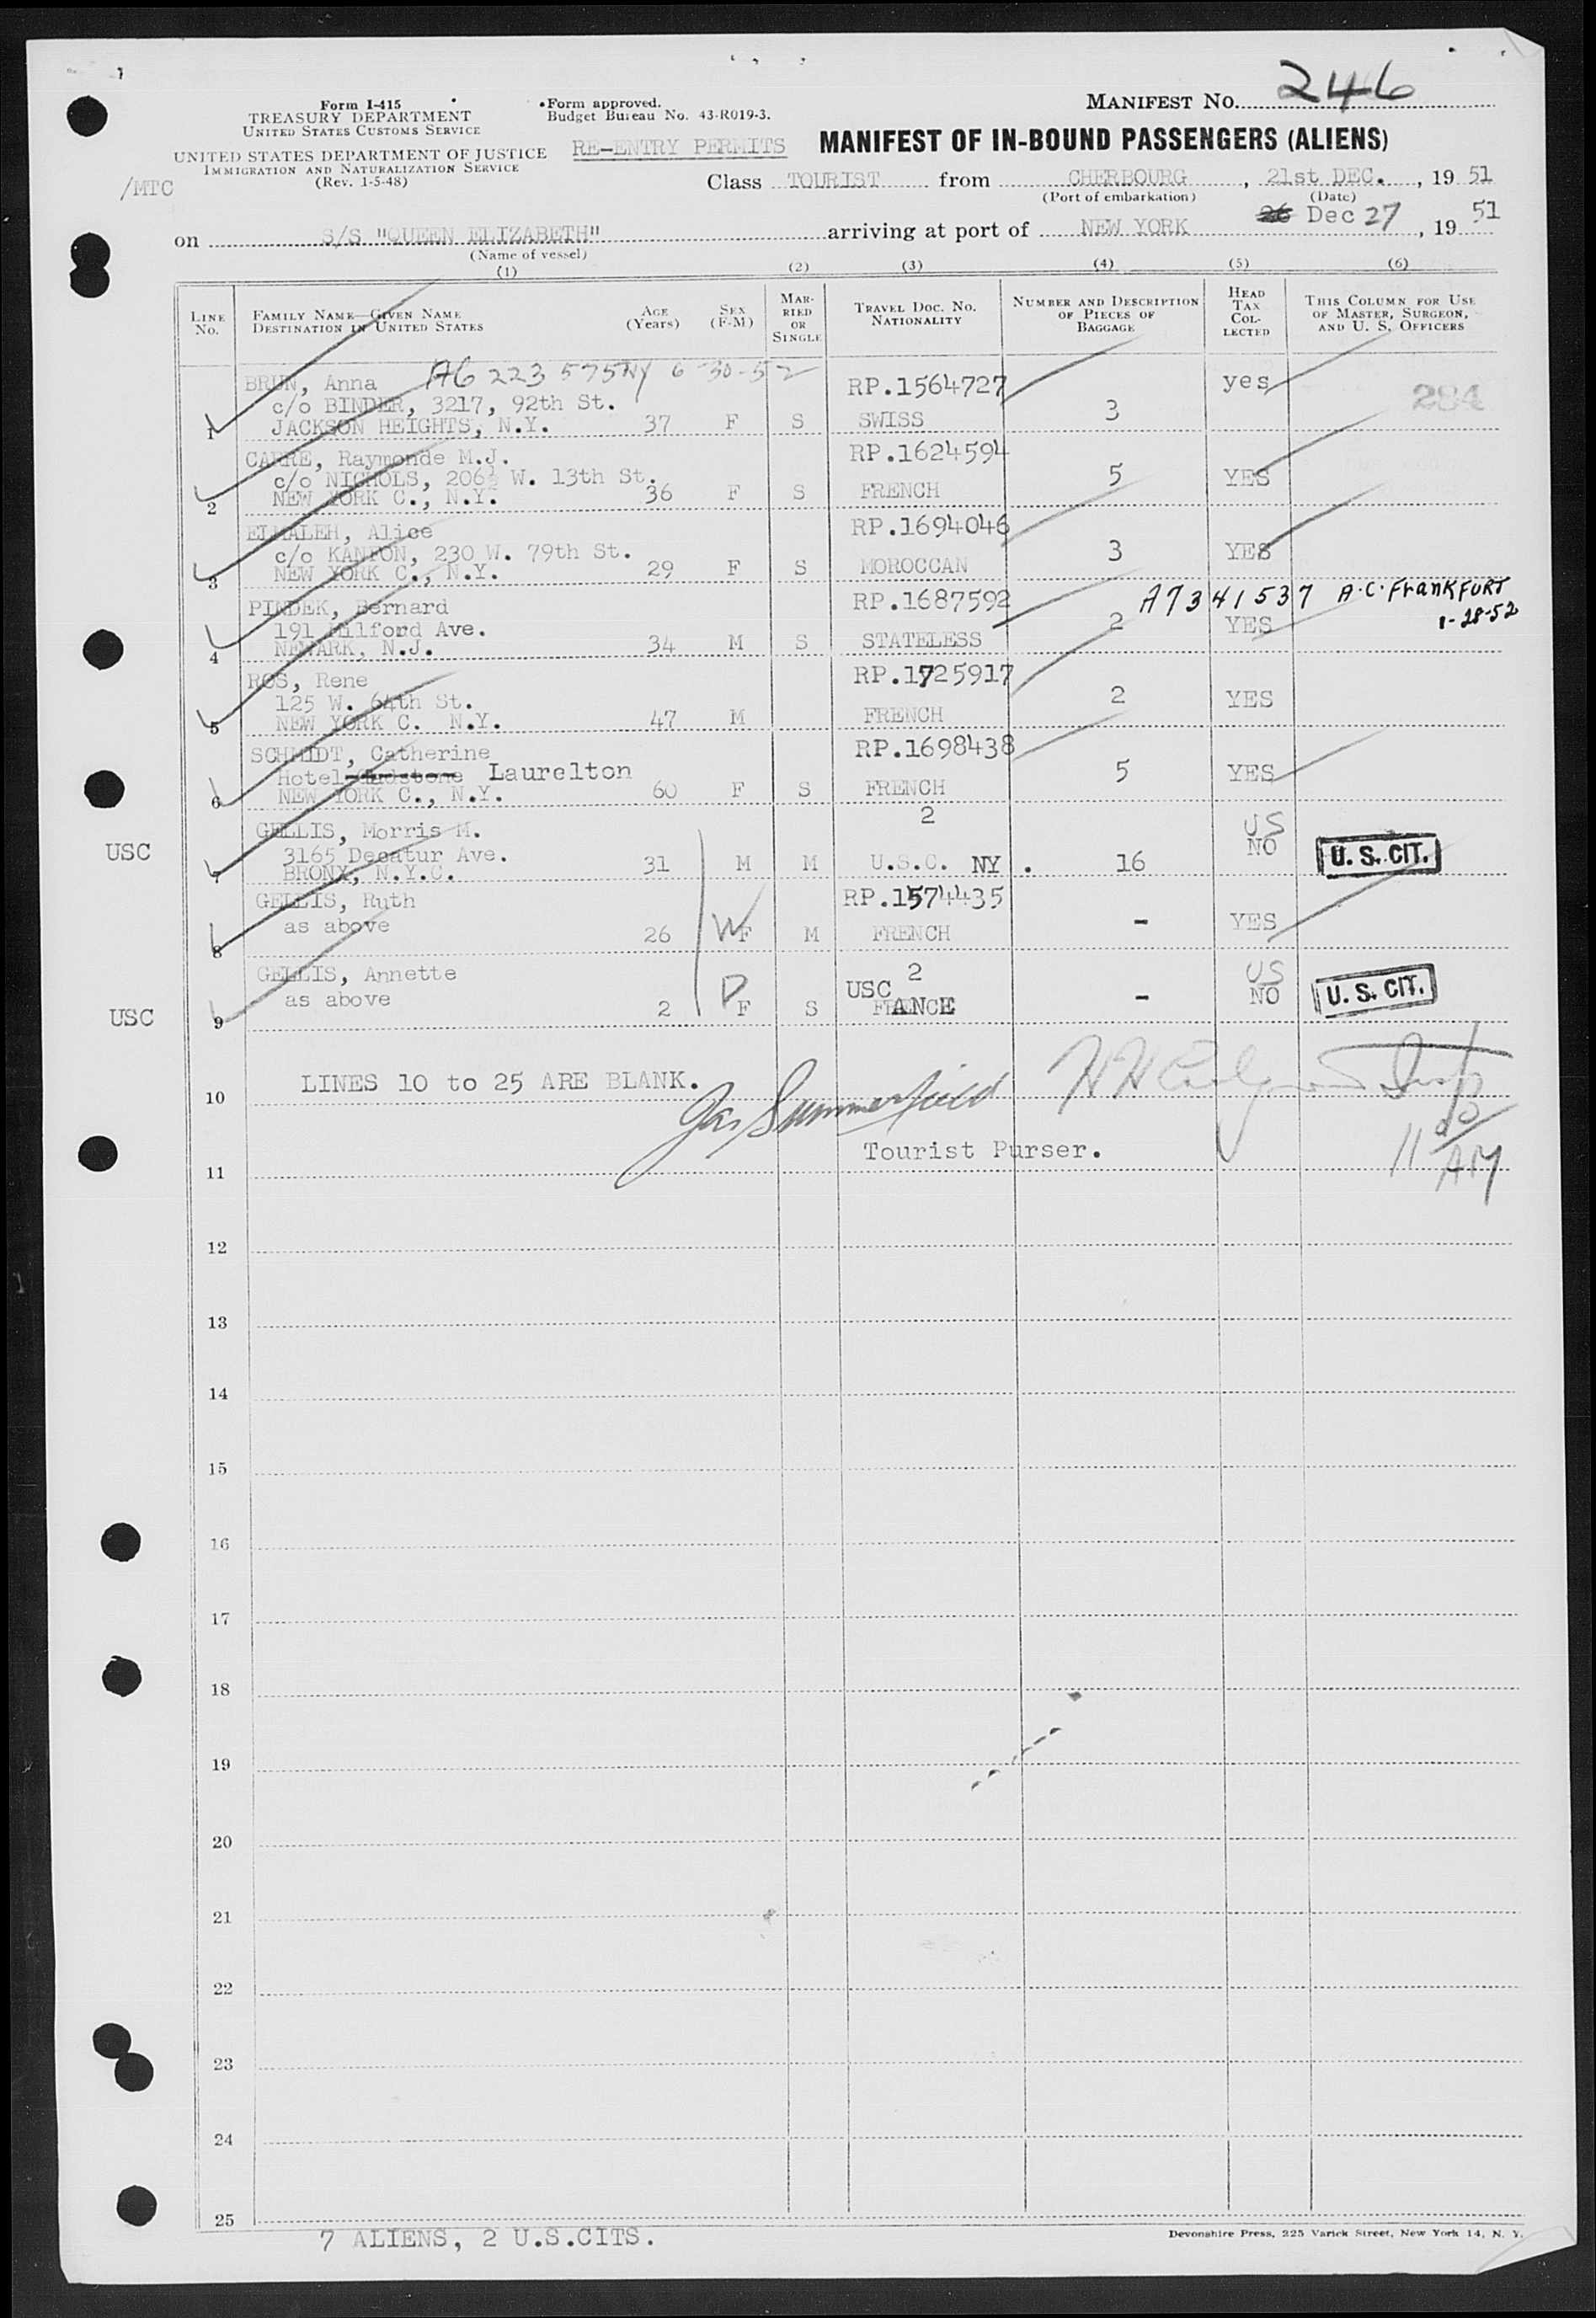 Form I-415
TREASURY DEPARTMENT
UNITED STATES CUSTOMS SERVICE
UNITED STATES DEPARTMENT OF JUSTICE
IMMIGRATION AND NATURALIZATION SERVICE
(Rev. 1-5-48)
/MTC
Form approved.
Budget Bureau No. 43-R019-3.
RE-ENTRY PERMITS
MANIFEST NO. 246
MANIFEST OF IN-BOUND PASSENGERS (ALIENS)
Class TOURIST from CHERBOURG, 21st DEC., 19 51
(Port of embarkation) (Date)
on S/S "QUEEN ELIZABETH" arriving at port of NEW YORK 26 Dec 27, 19 51
(Name of vessel)
(1) (2) (3) (4) (5) (6)
LINE No. FAMILY NAME—GIVEN NAME DESTINATION IN UNITED STATES AGE (Years) SEX (F-M) MARRIED OR SINGLE TRAVEL DOC. NO. NATIONALITY NUMBER AND DESCRIPTION OF PIECES OF BAGGAGE HEAD TAX COLLECTED THIS COLUMN FOR USE OF MASTER, SURGEON, AND U. S. OFFICERS
BRUN, Anna A6 223 575 NY 6-30-52 RP.1564727 yes 284
c/o BINDER, 3217, 92th St.
1 JACKSON HEIGHTS, N.Y. 37 F S SWISS 3
CARRE, Raymonde M.J. RP.1624594
c/o NICHOLS, 206½ W. 13th St.
2 NEW YORK C., N.Y. 36 F S FRENCH 5 YES
ELMALEH, Alice RP.1694046
c/o KANFON, 230 W. 79th St.
3 NEW YORK C., N.Y. 29 F S MOROCCAN 3 YES
PINDEK, Bernard RP.1687592 A7341537 A.C. FRANKFURT
191 Milford Ave. 1-28-52
4 NEWARK, N.J. 34 M S STATELESS 2 YES
ROS, Rene RP.1725917
125 W. 64th St.
5 NEW YORK C. N.Y. 47 M FRENCH 2 YES
SCHMIDT, Catherine RP.1698438
Hotel Laurelton
6 NEW YORK C., N.Y. 60 F S FRENCH 5 YES
GELLIS, Morris M. 2 US
USC 3165 Decatur Ave. NO U. S. CIT.
7 BRONX, N.Y.C. 31 M M U.S.C. NY . 16
GELLIS, Ruth RP.1574435
as above
8 26 W F M FRENCH - YES
GELLIS, Annette 2 US
as above USC
USC 9 2 D F S FRANCE - NO U. S. CIT.
10 LINES 10 to 25 ARE BLANK.
Jas Summerfield
11 Tourist Purser. 11 AM
12
13
14
15
16
17
18
19
20
21
22
23
24
25
7 ALIENS, 2 U.S.CITS.
Devonshire Press, 225 Varick Street, New York 14, N. Y.